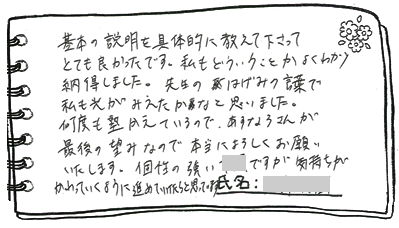 基本の説明を具体的に教えて下さって
とても良かったです。私もどういうことかよくわかり
納得しました。先生の はげみの言葉で
私も光がみえたかなと思いました。
何度も塾かえているので、あすなろさんが
最後の望みなので本当によろしくお願い
いたします。個性の強い ですが気持ちが
かわっていくように進めていけたらと思ってます
氏名：